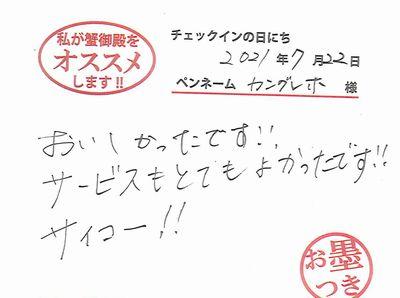 私が蟹御殿を
オススメ
します!!
チェックインの日にち
2021年7月22日
ペンネーム カングレホ 様
おいしかったです!!
サービスもとてもよかったです!!
サイコー!!
お墨
つき